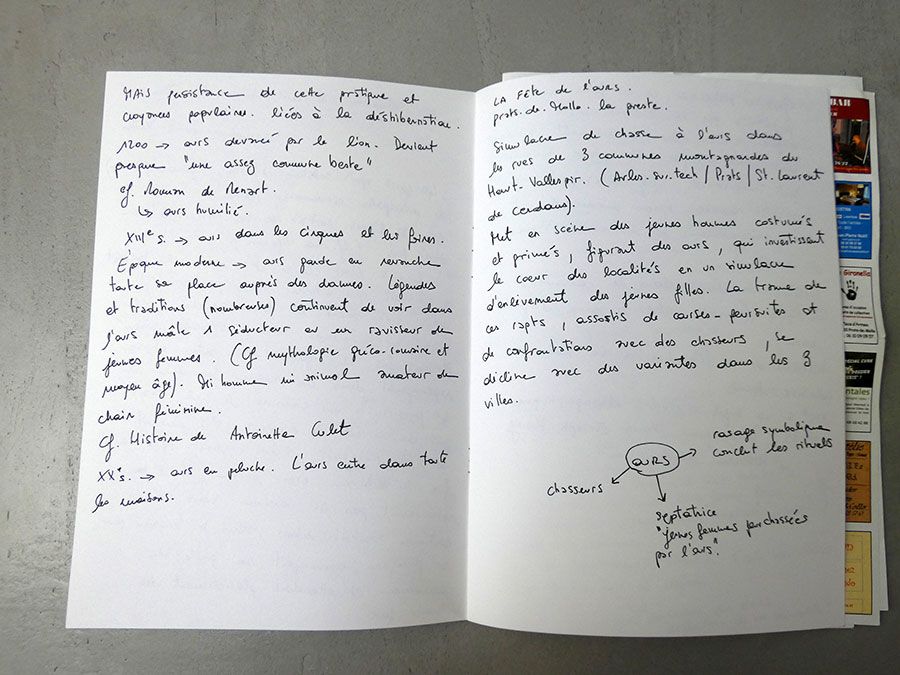 MAIS persistance de cette pratique et
croyances populaires. liées à la déshibernation.
1200 → ours devancé par le lion. Devient
presque "une assez commune beste"
cf. Roman de Renart.
↳ ours humilié.
XIIIe s. → ours dans les cirques et les foires.
Époque moderne → ours garde en revanche
toute sa place auprès des dames. Légendes
et traditions (nombreuses) continuent de voir dans
l'ours mâle 1 séducteur ou un ravisseur de
jeunes femmes. (Cf mythologie gréco-romaine et
moyen âge). Mi homme mi animal amateur de
chair féminine.
Cf. Histoire de Antoinette Culet
XXe s. → ours en peluche. L'ours entre dans toute
les maisons.
LA FÊTE de l'ours.
prats. de. Mollo. la preste.
Simulacre de chasse à l'ours dans
les rues de 3 communes montagnardes du
Haut-Vallespir. (Arles. sur. tech / Prats / St. Laurent
de cerdans).
Met en scène des jeunes hommes costumés
et grimés, figurant des ours, qui investissent
le coeur des localités en un simulacre
d'enlèvement des jeunes filles. La trame de
ces rapts, assortis de courses-poursuites et
de confrontations avec des chasseurs, se
décline avec des variantes dans les 3
villes.
OURS
rasage symbolique
conclut les rituels
chasseurs
"jeunes femmes pourchassées
par l'ours".
BAR
Gironella
SPECIAL CURE